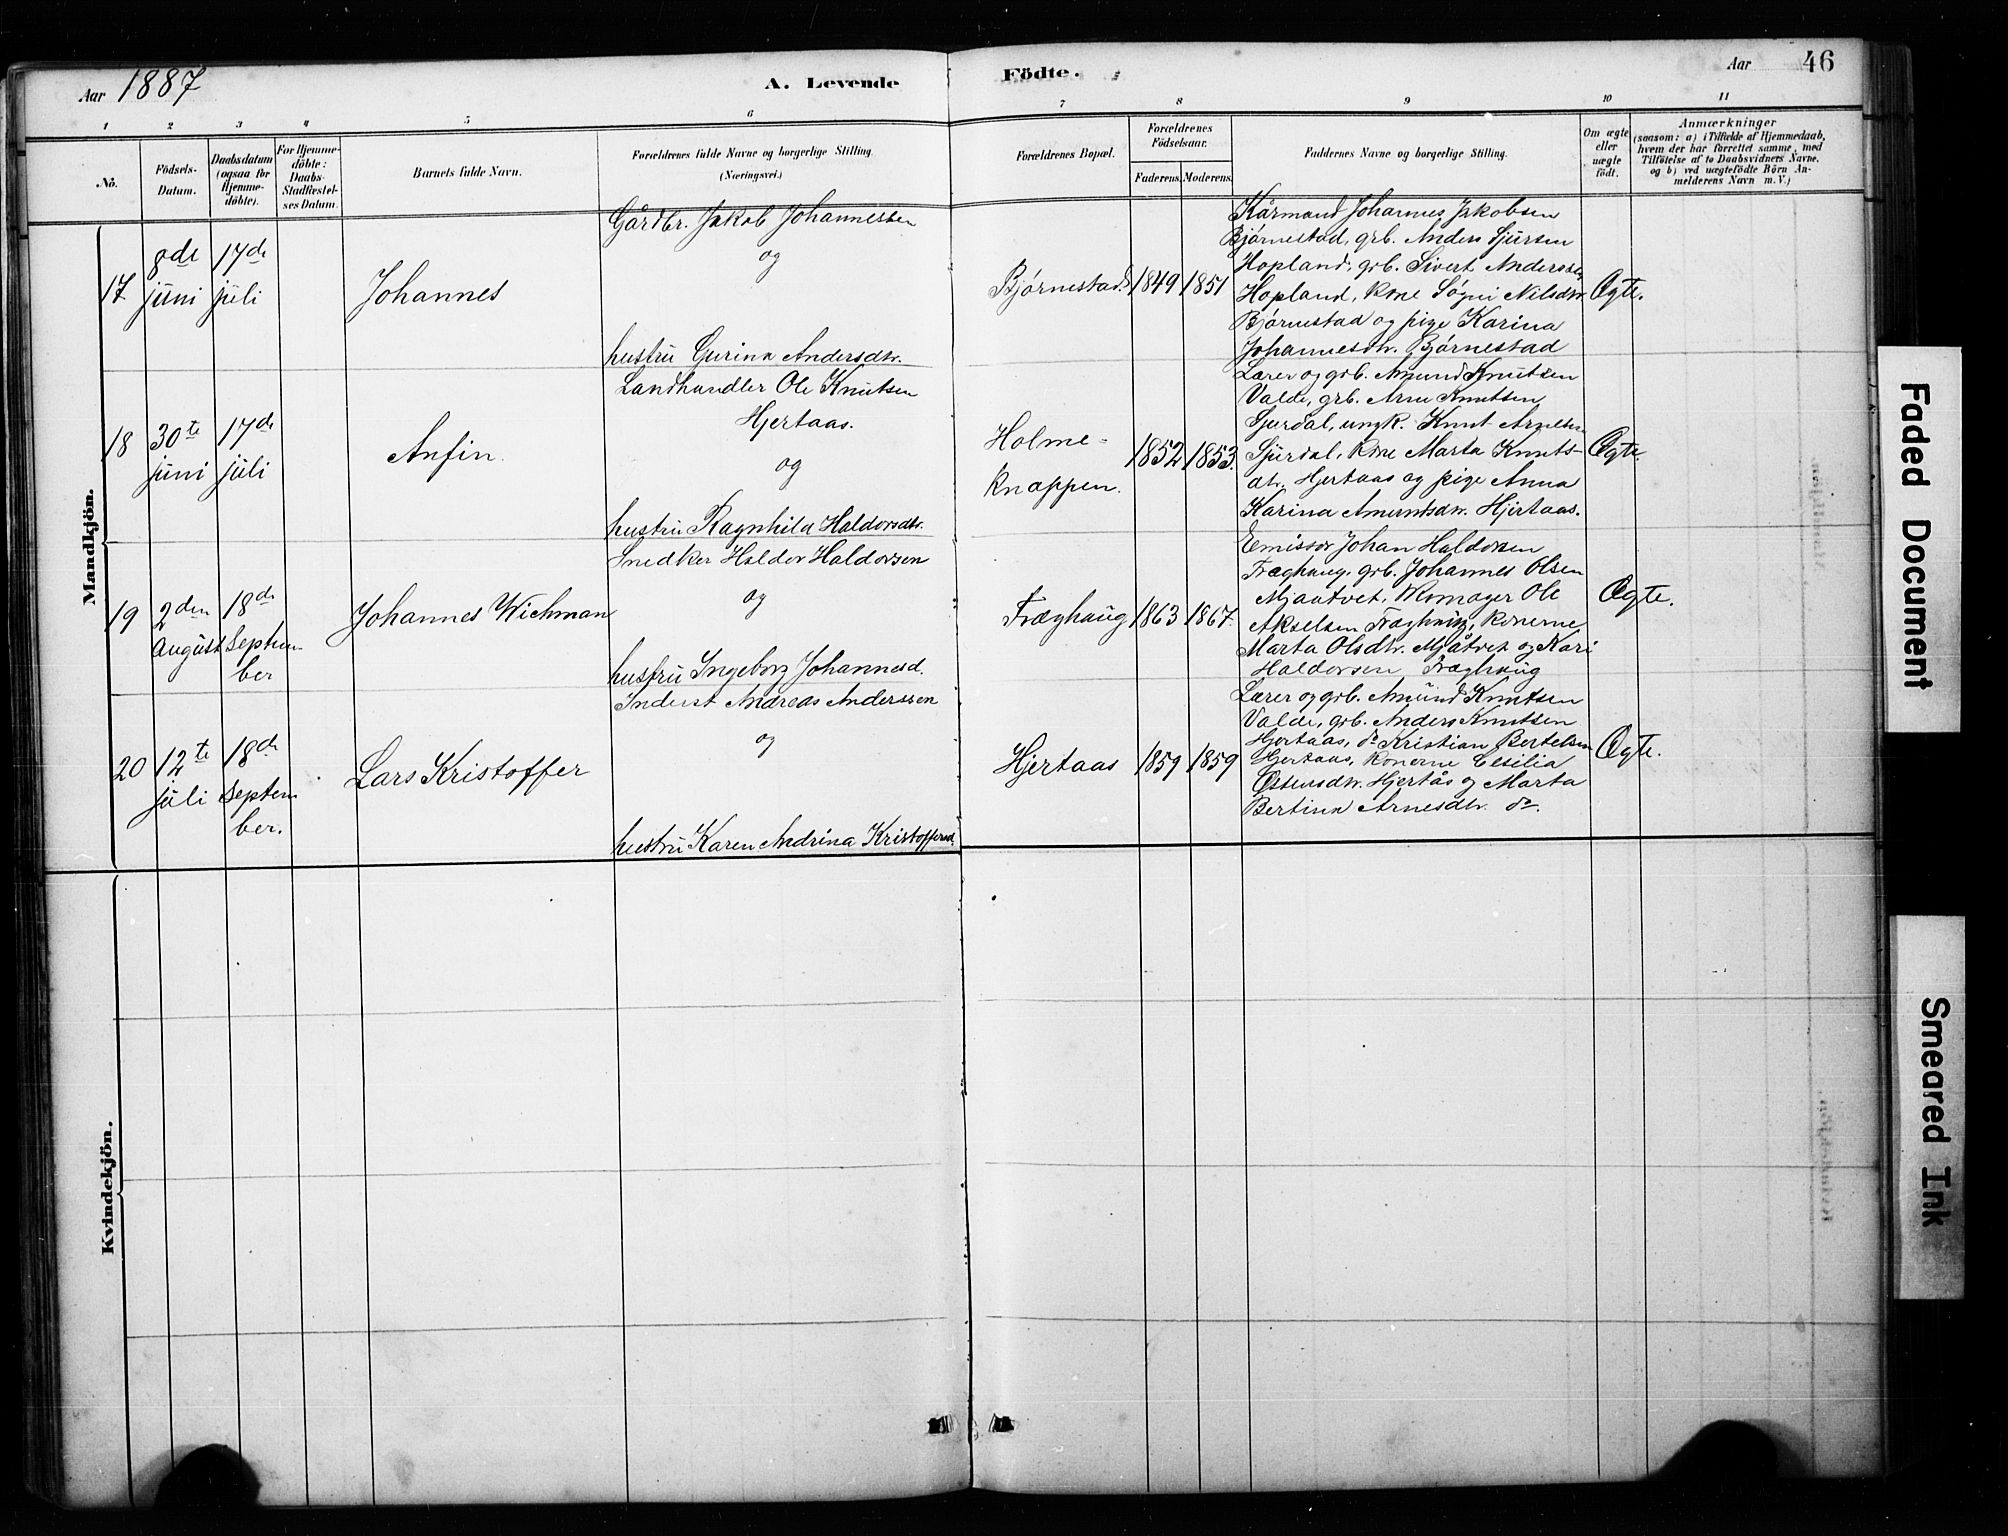 Aar 1887
A. Levende Födte.
Aar 46
1 2 3 4 5 6 7 8 9 10 11
No.
Födsels-Datum.
Daabsdatum (ogsaa for Hjemme-döbte).
For Hjemme-döbte: Daabs-Stadfæstel-ses Datum.
Barnets fulde Navn.
Forældrenes fulde Navne og borgerlige Stilling.
(Næringsvei.)
Forældrenes Bopæl.
Forældrenes Födselsaar.
Faderens. Moderens.
Faddernes Navne og borgerlige Stilling.
Om ægte eller uægte födt.
Anmærkninger
(saasom: a) i Tilfælde af Hjemmedaab,
hvem der har forrettet samme, med
Tilföielse af to Daabsvidners Navne,
og b) ved uægtefödte Börn An-
melderens Navn m. V.)
Mandkjön.
17
8de juni
17de juli
Johannes
Gårdbr. Jakob Johannessen
og
hustru Gurina Andersdtr.
Bjørnestad
1849 1851
Kårmand Johannes Jakobsen
Bjørnestad, grb. Anders Sjursen
Hopland, grb. Sivert Anderssen
Hopland, kone Søgni Nilsdtr.
Bjørnestad og pige Karina
Johannesdtr. Bjørnestad
Ægte.
18
30te juni
17de juli
Anfin.
Landhandler Ole Knutsen
Hjertaas.
og
hustru Ragnhild Haldorsdtr.
Holme-
knappen.
1852 1853.
Lærer og grb. Amund Knutsen
Valde, grb. Arne Knutsen
Sjurdal, ungk. Knut Arnesen
Sjurdal, kone Marta Knuts-
dtr. Hjertaas og pige Anna
Karina Amundsdtr. Hjertaas.
Ægte.
19
2den August
18de Septem-
ber
Johannes Wichman
Snedker Haldor Haldorsen
og
hustru Ingeborg Johannesd.
Fræghaug
1863 1867
Emissær Johan Haldorsen
Fræghaug, grb. Johannes Olsen
Mjaatvet, Skomager Ole
Akselsen Fræghaug, konerne
Marta Olsdtr. Mjåtvet og Kari
Haldorsen Fræghaug
Ægte.
20
12te juli
18de Septem
ber.
Lars Kristoffer
Inderst Andreas Anderssen
og
hustru Karen Andrina Kristoffersd.
Hjertaas
1859 1859
Lærer og grb. Amund Knutsen
Valde, grb. Anders Knutsen
Hjertaas, do Kristian Bertelsen
Hjertaas, konerne Cesilia
Østensdtr. Hjertås og Marta
Bertina Arnesdtr. do.
Ægte.
Kvindekjön.
Faded Document
Smeared Ink